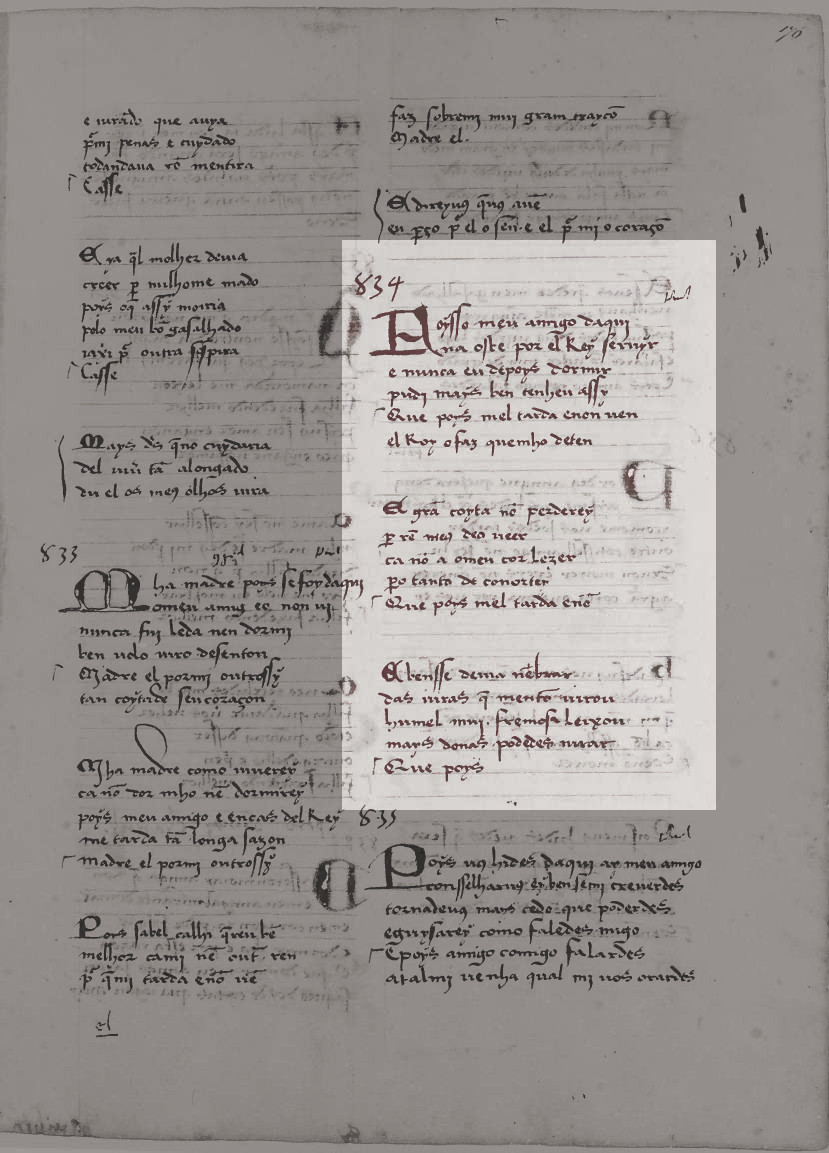 e iurãdo que auya
p̃mi penas e cuydado
todandaua cõ mentira
Casse
E ra q̃l molher deuia
creer p nulhome mado
poys oq̃ assy moiria
polo meu bõ gasalhado
ia p̃ outra sospira
Casse
Mays d's q̃no cuydaria
del uiu' tã alongado
du el os meꝯ olhos uira
833
Mha madre poys se foy daqui
omeu amigꝯ e o non ui
nunca fui leda nen dormi
ben uolo iuro desenton
Madre el pormi outrossy
tan coytade seu coraçon
Mha madre como uiuerey
ca nõ dor mho nẽ dormirey
poys meu amigo e en cas del Rey
me tarda tã longa sazon
madre el pormi outrossy
Poys sabel calhi q̃reu bẽ
melhor cami nẽ out' ren
p̃ q̃mi tarda enõ uẽ
el
176
faz sobremi mui gram trayçõ
Madre el
E direyuꝯ q̃uꝯ auẽ
eu pço p̃ el o sen e el p̃ mi o coraçõ
834
Foysso meu amigo daqui
na oste por el Rey seruyr
e nunca eu depoys dormir
pudi mays ben tenheu assy
Que poys mel tarda enon uen
el Rey o faz quemho deten
E grã coyta nõ perderey
p rẽ meꝯ deo ueer
ca nõ a omeu cor lezer
po tanto de conorter
Que poys mel tarda enõ
E benssse deuia nẽbrar
das iuras q̃ mentõ iurou
hu mel mui fremosa leixou
mays donas podedes iurar
Que poys
835
Poys uꝯ hides daqui ay meu amigo
consselharuꝯ ey ben semi creuerdes
tornadeuꝯ mays cedo que poderdes
eguysarey como faledes migo
E poys amigo comigo falardes
atalmi uenha qual mi uos oraedes